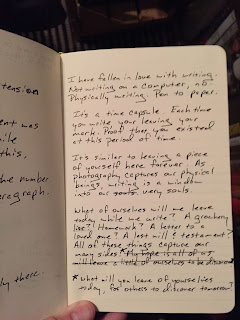 tension
ent was
ile
this,
he number
aragraph.
ly there.
I have fallen in love with writing.
Not writing on a computer, no
Physically writing. Pen to paper.
It's a time capsule Each time
you write your leaving your
mark. Proof they you existed
at this period of time.
It's similar to leaving a piece
of yourself here forever. As
photography captures our physical
beings, writing is a window
into our souls very souls.
What of ourselves will we leave
today while we write? A grocery
list? Homework? A letter to a
loved one? A last will & testament?
All of these things capture our
many sides! My hope is all of us
will leave a little of ourselves to be discovered
*What will you leave of yourselves
today, for others to discover tomorrow?